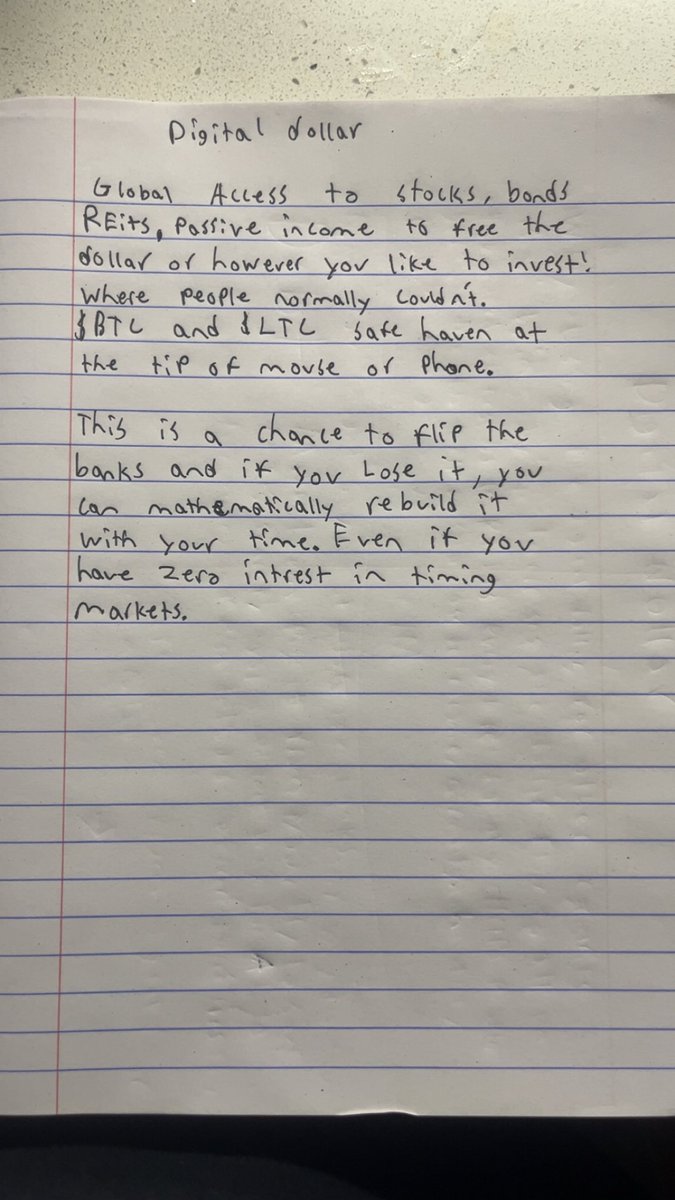 Digital dollar
Global Access to stocks, bonds
REits, Passive income to free the
dollar or however you like to invest!
where people normally couldn't.
$BTC and $LTC safe haven at
the tip of mouse or Phone.
This is a chance to flip the
banks and if you Lose it, you
can mathematically rebuild it
with your time. Even if you
have Zero intrest in timing
markets.